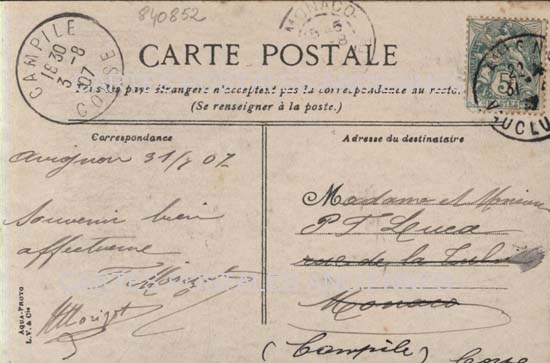 840852
MONACO
CAMPILE
18 30
3 -8
07
CORSE
CARTE POSTALE
pays étrangers n'acceptent pas la correspondance au recto
(Se renseigner à la poste.)
Correspondance
Adresse du destinataire
Avignon 31/7 07
Souvenir bien
affectueux
Madame et Monsieur
P T Luca
rue de la
Monaco
(Campile) Corse
AQUA-PHOTO
L.V. & Cie
5
VAUCLUSE